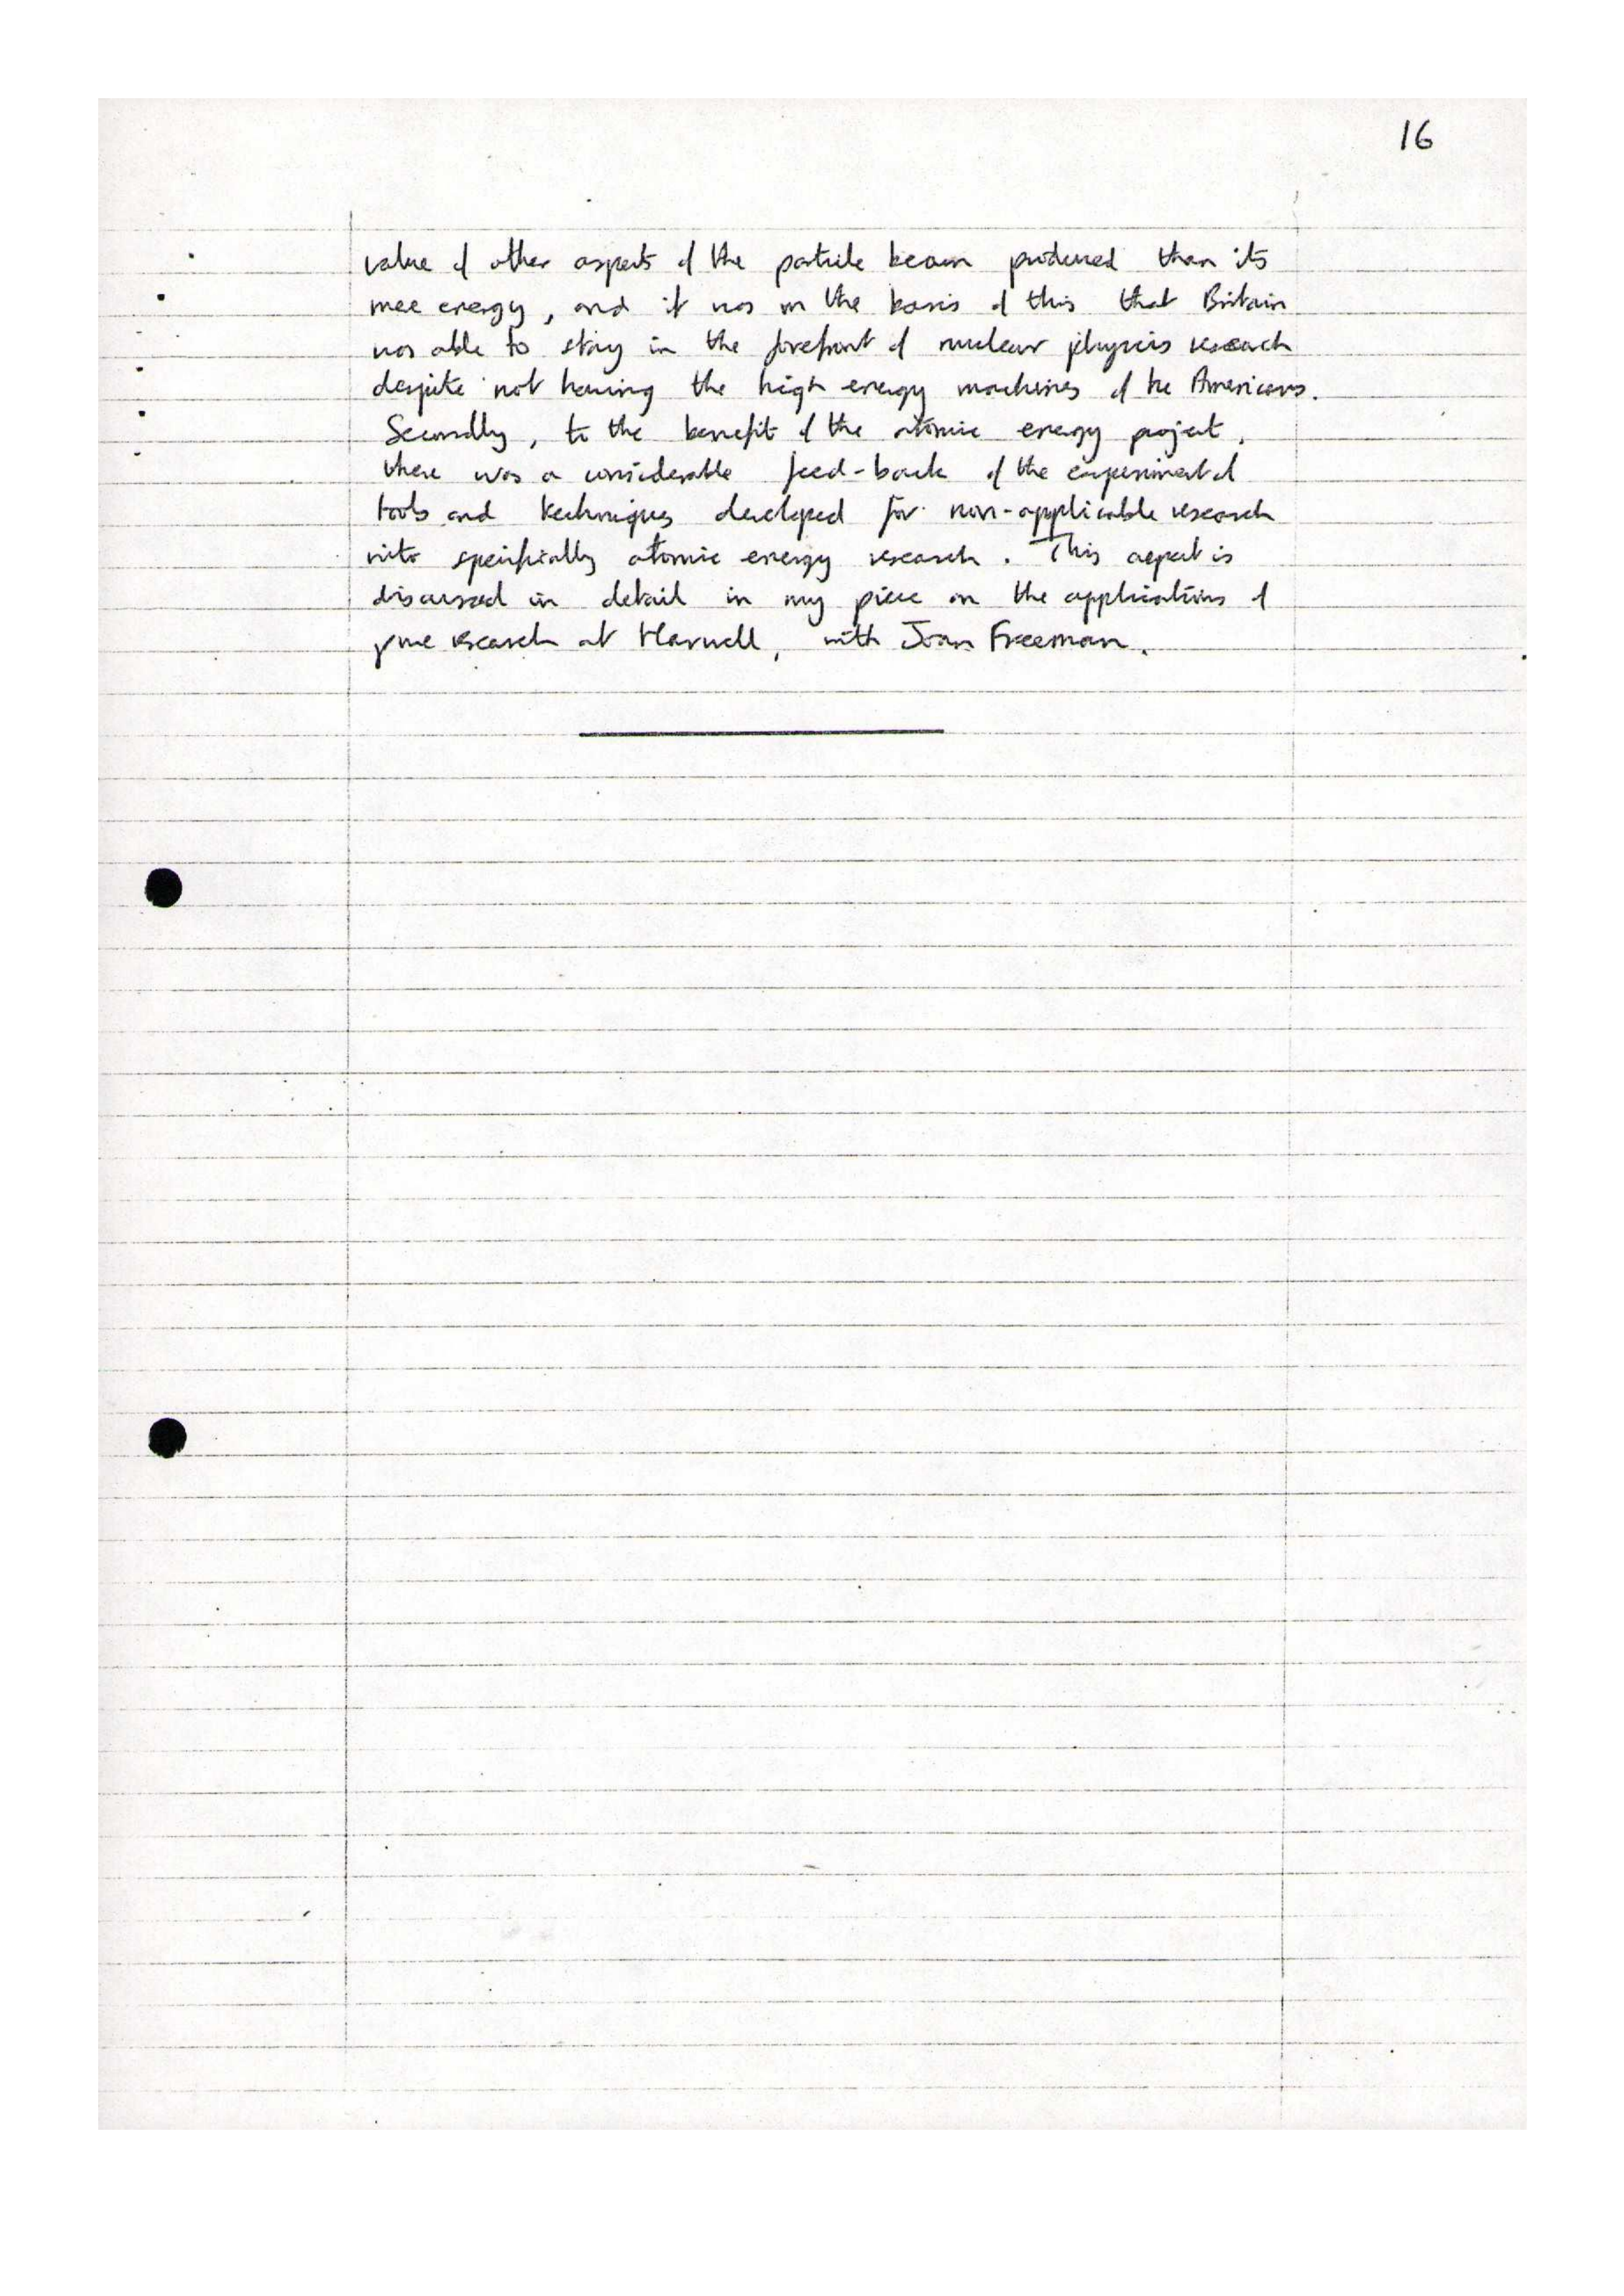 16
value of other aspects of the particle beam produced than its
mere energy, and it was on the basis of this that Britain
was able to stay in the forefront of nuclear physics research
despite not having the high energy machines of the Americans.
Secondly, to the benefit of the atomic energy project,
there was a considerable feed-back of the experimental
tools and techniques developed for non-applicable research
into specifically atomic energy research. This aspect is
discussed in detail in my piece on the applications of
pure research at Harwell, with Joan Freeman.